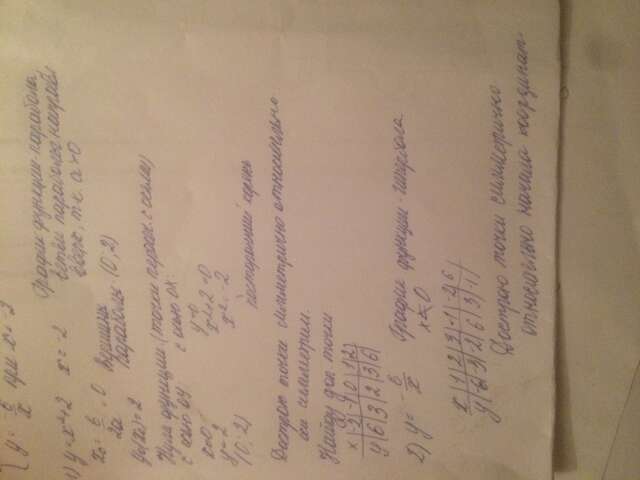 { y = -6/x при x < -2
График функции-парабола
1) y = x²+2 x = -2 ветви параболы направл
вверх, т.к. a>0
x₀ = b/2a = 0 Вершины
параболы. (0; 2)
y₀(x₀) = 2
Нули функции. (точки пересеч. с осями)
с осью OY с осью OX.
x=0 y=0
y=2 x²+2=0
(0; 2) x²=-2
"посторонний" корень
Дострою точки симметрично относительно
оси симметрии.
Найду доп. точки
x |-2|-1|0|1|2|
y |6|3|2|3|6|
2) y = -6/x График функции - гипербола
x ≠ 0
x |1|2|3|-1|-2|6
y |-6|-3|-2|6|3|-1|
Дострою точки симметрично
относительно начала координат